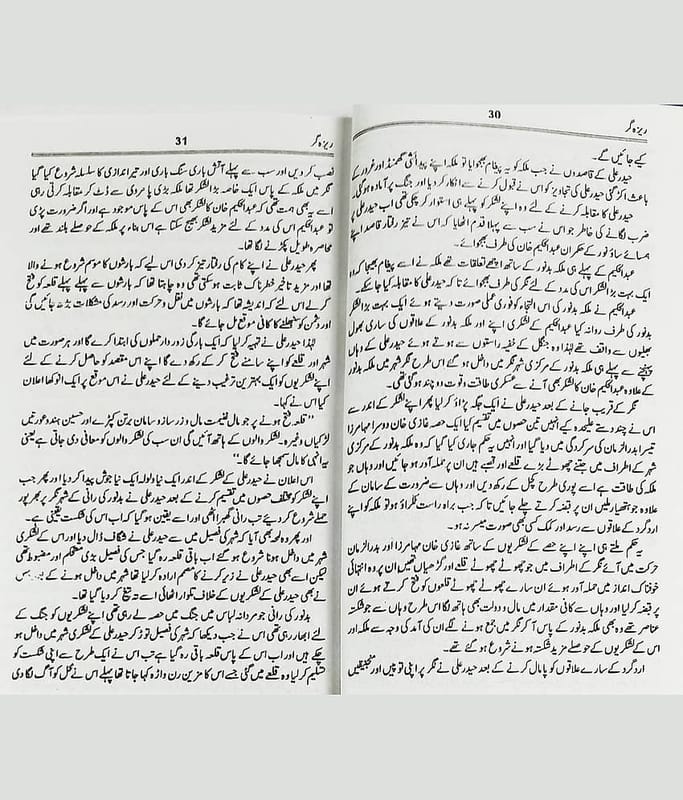 30
ریزہ گر
کیے جائیں گے۔
حیدر علی کے قاصدوں نے جب ملکہ کو یہ پیغام بھجوایا تو ملکہ اپنے پیدائشی گھمنڈ اور غرور کے
باعث اکڑ گئی حیدر علی کی تجاویز کو اس نے قبول کرنے سے انکار کر دیا اور جنگ پر آمادہ ہو گئی۔
حیدر علی کا مقابلہ کرنے کے لئے وہ اپنے لشکر کو پہلے ہی استوار کر چکی تھی اب حیدر علی پر
ضرب لگانے کی خاطر جو اس نے سب سے پہلا قدم اٹھایا کہ اس نے تیز رفتار قاصد اپنے
ہمسائے ساؤنور کے حکمران عبدالحکیم خان کی طرف بھجوائے۔
عبدالحکیم کے پہلے ہی ملکہ بدنور کے ساتھ اچھے تعلقات تھے ملکہ نے اسے پیغام بھیجا کہ وہ
ایک بہت بڑا لشکر اس کی مدد کے لئے نگر کی طرف بھجوائے تا کہ حیدر علی کا مقابلہ کیا جا سکے۔
عبدالحکیم نے ملکہ بدنور کی اس التجاء کو فوری عملی صورت دیتے ہوئے ایک بہت بڑا لشکر
بدنور کی طرف روانہ کیا عبدالحکیم کے لشکری اپنے اور ملکہ بدنور کے علاقوں کی ساری بھول
بھلیوں سے واقف تھے لہٰذا وہ جنگل کے خفیہ راستوں سے ہوتے ہوئے حیدر علی کے وہاں
پہنچنے سے پہلے ہی ملکہ بدنور کے مرکزی شہر نگر میں داخل ہو گئے اس طرح نگر شہر میں ملکہ بدنور
کے علاوہ عبدالحکیم خان کا لشکر بھی آنے سے عسکری طاقت و قوت دو چند ہو گئی تھی۔
نگر کے قریب جانے کے بعد حیدر علی نے ایک جگہ پڑاؤ کر لیا پھر اپنے لشکر کے اندر سے
اس نے چند دستے علیحدہ کیے انہیں تین حصوں میں تقسیم کیا ایک حصہ غازی خان دوسرا مہا مرزا
تیسرا بدر الزمان کی سرکردگی میں دیا گیا اور انہیں یہ حکم جاری کیا گیا کہ وہ ملکہ بدنور کے مرکزی
شہر کے اطراف میں جتنے چھوٹے بڑے قلعے اور قصبے ہیں ان پر حملہ آور ہو جائیں اور وہاں جو
ملکہ کی طاقت ہے اسے پوری طرح کچل کے رکھ دیں اور وہاں سے ضرورت کے سامان کے
علاوہ جو ہتھیار ملیں ان پر قبضہ کرتے چلے جائیں تا کہ جب براہ راست ٹکراؤ ہو تو ملکہ کو اپنے
ارد گرد کے علاقوں سے رسد اور کمک کسی بھی صورت میسر نہ ہو۔
یہ حکم ملتے ہی اپنے اپنے حصے کے لشکریوں کے ساتھ غازی خان مہا مرزا اور بدر الزمان
حرکت میں آئے نگر کے اطراف میں جو چھوٹے چھوٹے قلعے اور گڑھیاں تھیں ان پر وہ انتہائی
خوفناک انداز میں حملہ آور ہوئے ان سارے چھوٹے چھوٹے قلعوں کو فتح کرتے ہوئے ان
پر قبضہ کر لیا اور وہاں سے کافی مقدار میں مال و دولت بھی ہاتھ لگا اس طرح وہاں سے جو شکستہ
عناصر تھے وہ بھی ملکہ بدنور کے پاس آ کر نگر میں جمع ہونے لگے ان کی آمد کی وجہ سے ملکہ اور
اس کے لشکریوں کے حوصلے مزید شکستہ ہونے شروع ہو گئے تھے۔
ارد گرد کے سارے علاقوں کو پامال کرنے کے بعد حیدر علی نے نگر پر اپنی توپیں اور منجنیقیں
31
ریزہ گر
نصب کر دیں اور سب سے پہلے آتش باری سنگ باری اور تیر اندازی کا سلسلہ شروع کیا گیا
نگر میں ملکہ کے پاس ایک خاصہ بڑا لشکر تھا ملکہ بڑی پامردی سے ڈٹ کر مقابلہ کرتی رہی
اسے یہ بھی ہمت تھی کہ عبدالحکیم خان کا لشکر بھی اس کے پاس موجود ہے اور اگر ضرورت پڑی
تو عبدالحکیم اس کی مدد کے لئے مزید لشکر بھیج سکتا ہے اس بناء پر ملکہ کے حوصلے بلند تھے اور
محاصرہ طویل پکڑنے لگا تھا۔
پھر حیدر علی نے اپنے کام کی رفتار تیز کر دی اس لیے کہ بارشوں کا موسم شروع ہونے والا
تھا اور مزید تاخیر خطرناک ثابت ہو سکتی تھی وہ چاہتا تھا کہ بارشوں سے پہلے پہلے قلعہ کو فتح
کر لے اس لئے کہ اندیشہ تھا کہ بارشوں میں نقل و حرکت اور رسد کی مشکلات بڑھ جائیں گی
اور دشمن کو سنبھلنے کا کافی موقع مل جائے گا۔
لہٰذا حیدر علی نے تہیہ کر لیا کہ ایک بار گی زور دار حملوں کی ابتدا کرے گا اور ہر صورت میں
شہر اور قلعے کو اپنے سامنے فتح کر کے رکھ دے گا اپنے اس مقصد کو حاصل کرنے کے لئے
اپنے لشکریوں کو ایک بہترین ترغیب دینے کے لئے حیدر علی نے اس موقع پر ایک انوکھا اعلان
کیا اس نے کہا۔
''قلعہ فتح ہونے پر جو مال غنیمت مال و زر ساز و سامان برتن کپڑے اور حسین ہندو عورتیں
لڑکیاں وغیرہ۔ لشکر والوں کے ہاتھ آئیں گی ان سب کی لشکر والوں کو معافی دی جاتی ہے یعنی
یہ انہی کا مال سمجھا جائے گا۔''
اس اعلان نے حیدر علی کے لشکر کے اندر ایک نیا ولولہ ایک نیا جوش پیدا کر دیا اور پھر جب
اپنے لشکر کو مختلف حصوں میں تقسیم کرنے کے بعد حیدر علی نے بدنور کی رانی کے شہر نگر پر بھرپور
حملے شروع کر دیئے تب رانی گھبرا اٹھی اور اسے یقین ہو گیا کہ اب اس کی شکست یقینی ہے۔
اور پھر وہ لمحہ بھی آیا کہ شہر کی فصیل میں سے حیدر علی نے شگاف ڈال دیا اور اس کے لشکری
شہر میں داخل ہونا شروع ہو گئے اب باقی قلعہ رہ گیا جس کی فصیل بڑی مستحکم اور مضبوط تھی
لیکن اسے بھی حیدر علی نے زیر کرنے کا مصمم ارادہ کر لیا تھا شہر میں داخل ہونے کے بعد جس
نے بھی حیدر علی کے لشکریوں کے خلاف تلوار اٹھائی اسے تہہ تیغ کر دیا گیا تھا۔
بدنور کی رانی جو مردانہ لباس میں جنگ میں حصہ لے رہی تھی اپنے لشکریوں کو جنگ کے
لئے ابھار رہی تھی اس نے جب دیکھا کہ شہر کی فصیل توڑ کر حیدر علی کے لشکری شہر میں داخل ہو
چکے ہیں اور اب اس کے پاس قلعہ باقی رہ گیا ہے تب اس نے ایک طرح سے اپنی شکست کو
تسلیم کر لیا وہ قلعے میں گئی جسے اس کا مزین رن واڑہ کہا جاتا تھا پہلے اس نے محل کو آگ لگا دی